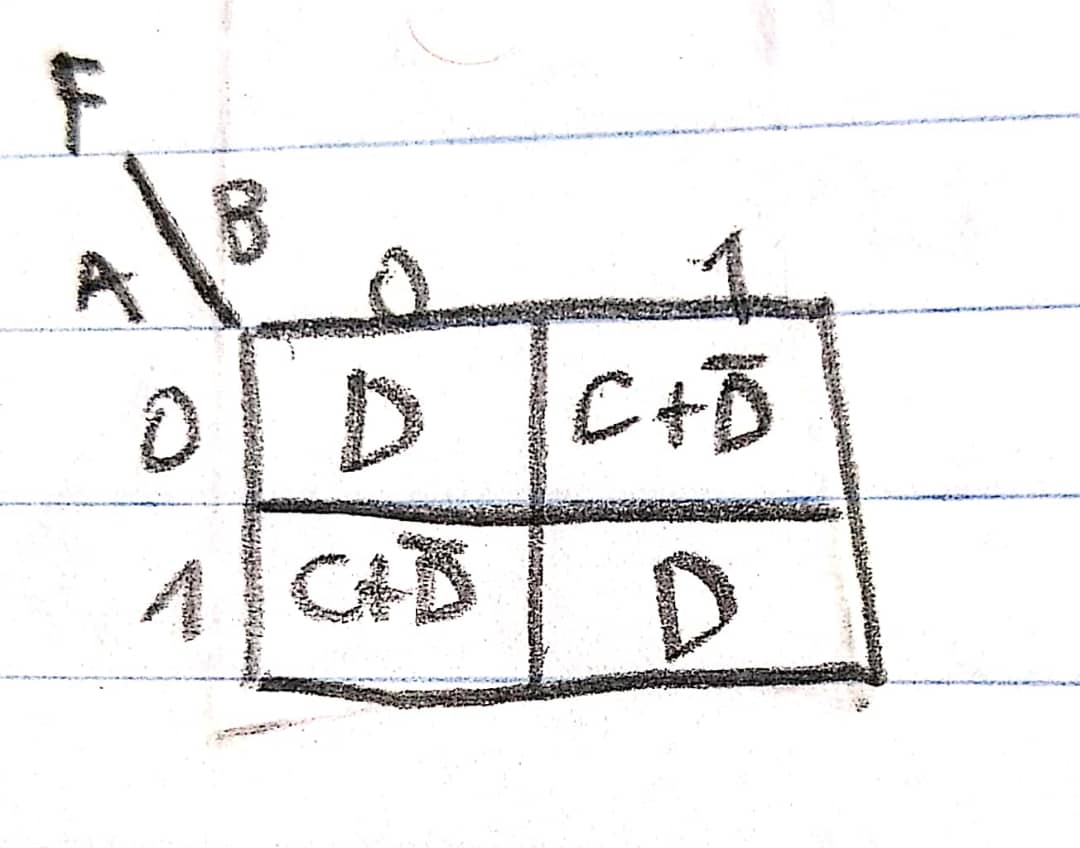 F
A B
0 1
0 D C+D̅
1 C+D̅ D